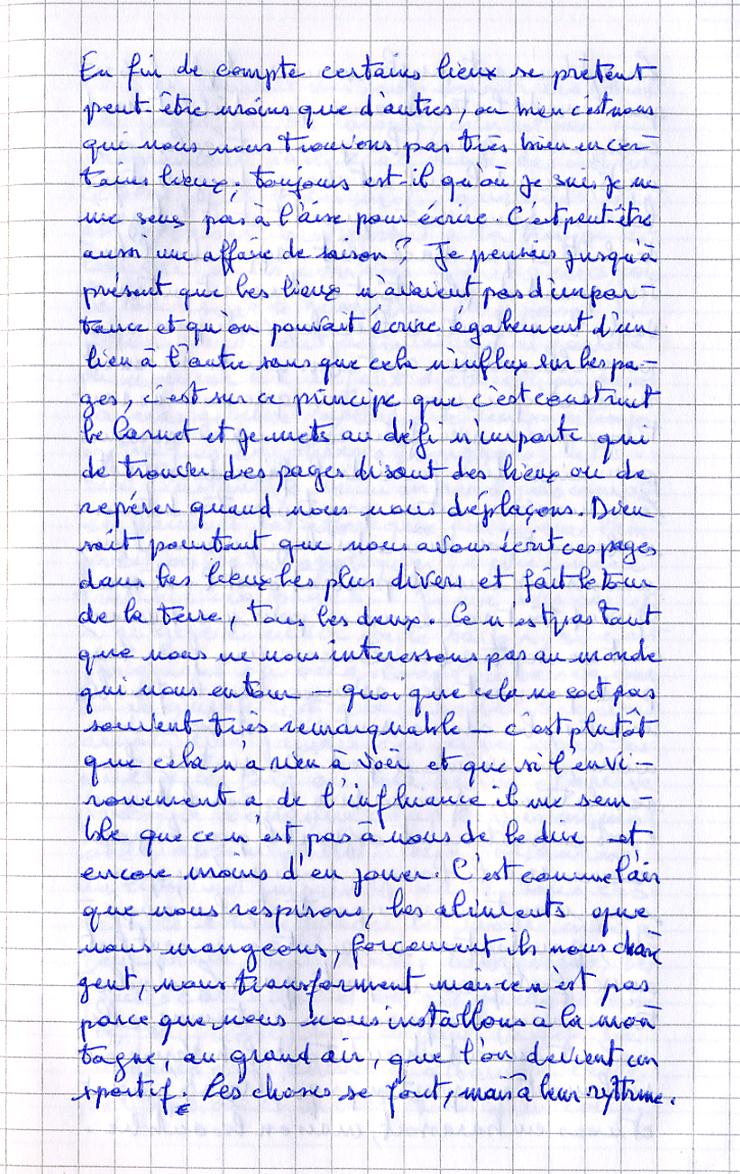 En fin de compte certains lieux se prêtent
peut-être moins que d'autres, ou bien c'est nous
qui nous nous trouvons pas très bien en cer-
tains lieux; toujours est-il qu'où je suis je ne
me sens pas à l'aise pour écrire. C'est peut-être
aussi une affaire de saison? Je pensais jusqu'à
présent que les lieux n'avaient pas d'impor-
tance et qu'on pouvait écrire également d'un
lieu à l'autre sans que cela n'influx sur les pa-
ges, c'est sur ce principe que c'est construit
le Carnet et je mets au défi n'importe qui
de trouver des pages disant des lieux ou de
repérer quand nous nous déplaçons. Dieu
sait pourtant que nous avons écrit ces pages
dans les lieux les plus divers et fait le tour
de la terre, tous les deux. Ce n'est pas tant
que nous ne nous interessons pas au monde
qui nous entour — quoique cela ne soit pas
souvent très remarquable — c'est plutôt
que cela n'a rien à voir et que si l'envi-
ronnement a de l'influance il me sem-
ble que ce n'est pas à nous de le dire et
encore moins d'en jouer. C'est comme l'air
que nous respirons, les aliments que
nous mangeons, forcement ils nous chan
gent, nous transforment mais ce n'est pas
parce que nous nous installons à la mon
tagne, au grand air, que l'on devient un
sportif. Les choses se font, mais à leur rythme.